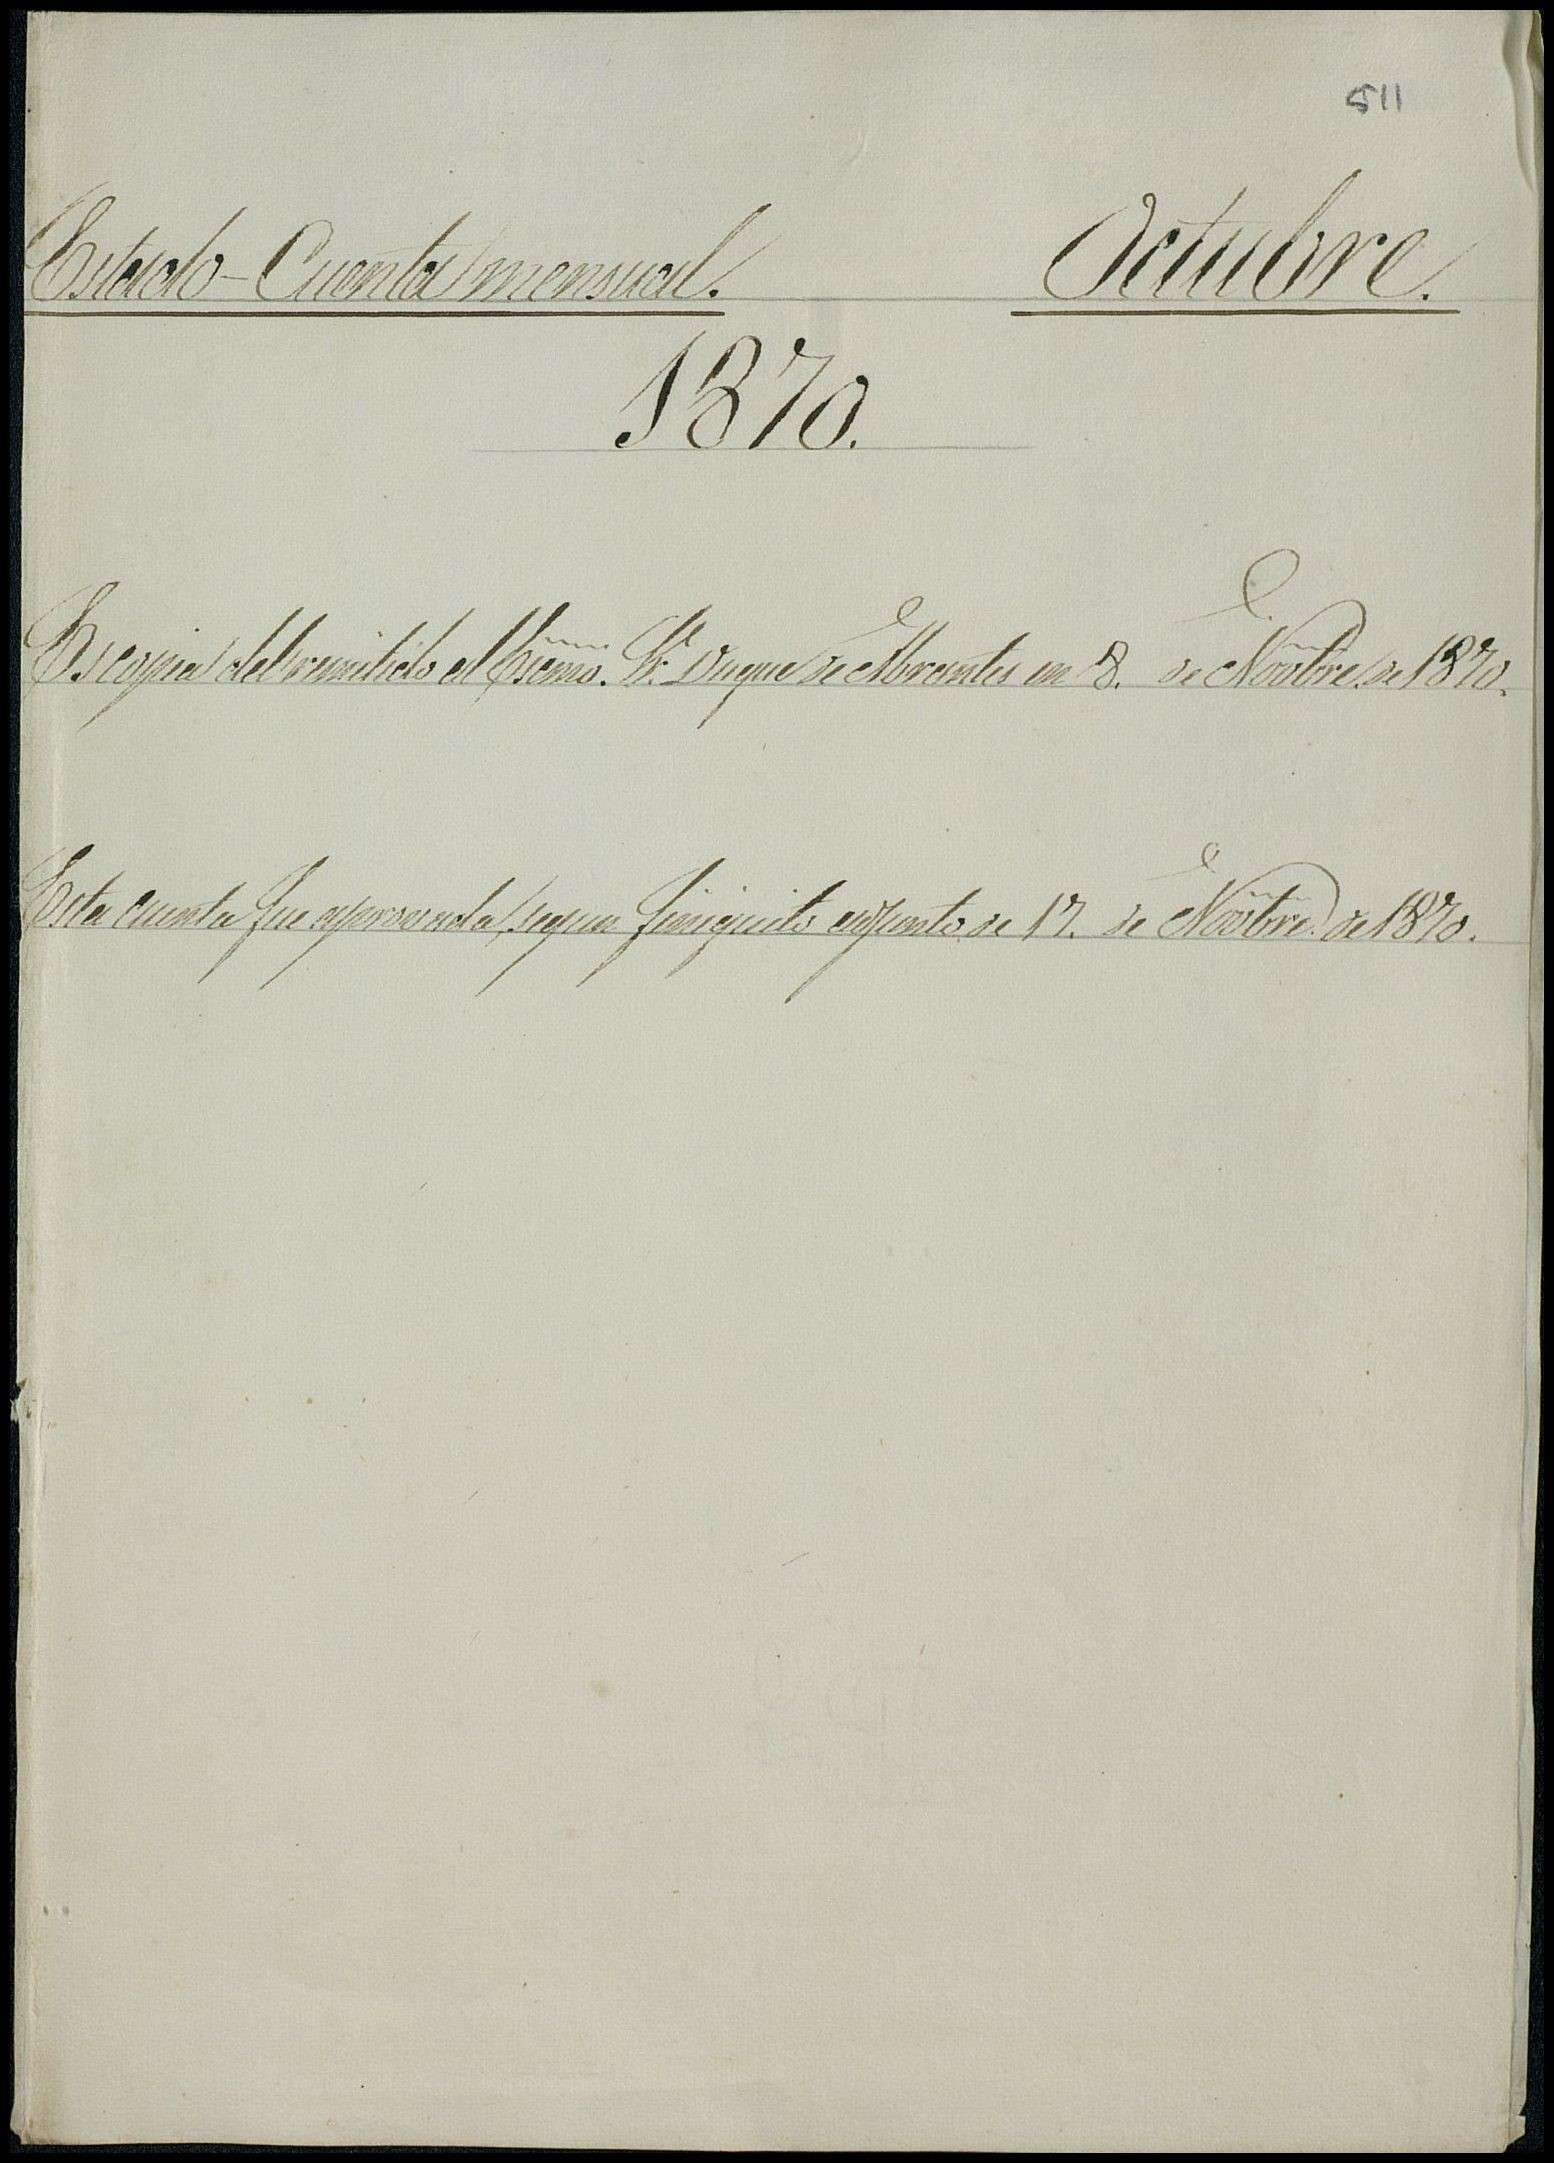 511
Estado-Cuenta mensual. Octubre.
1870.
Es copia del remitido al Excmo. Sr. Duque de Abrantes en 8. de Novbre. de 1870.
Esta cuenta fue aprovada, segun finiquito adjunto de 17. de Novbre. de 1870.